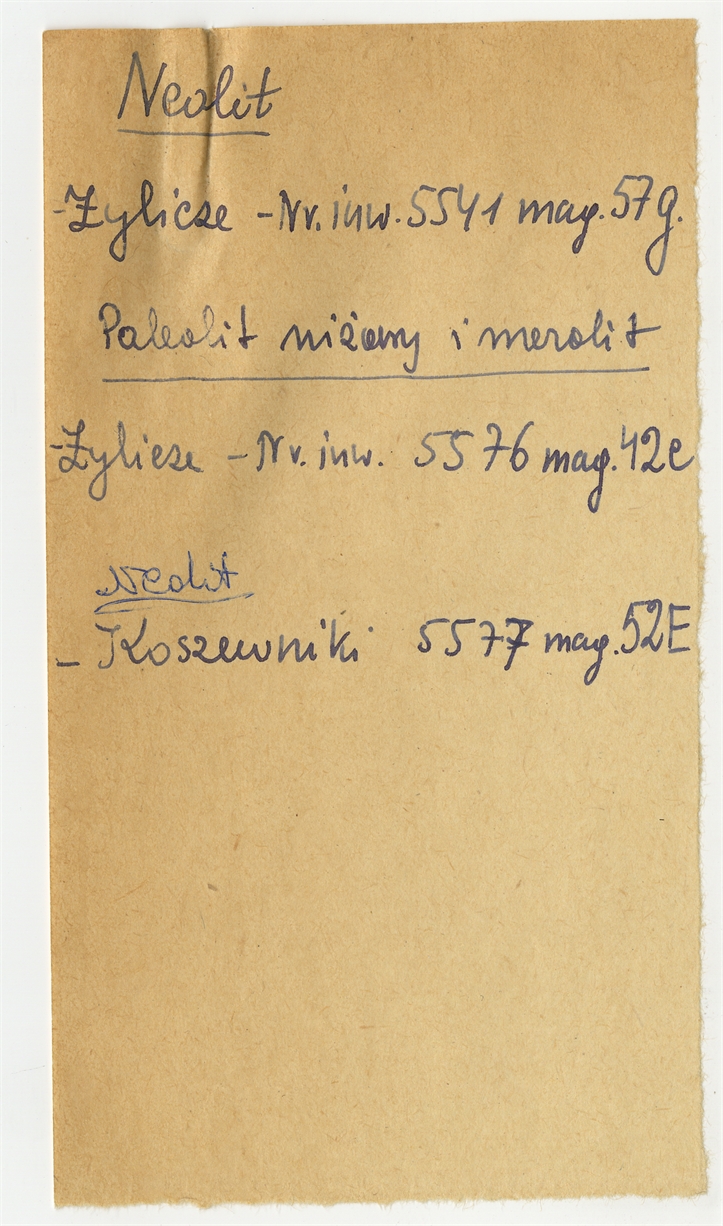 Neolit
- Żylicze - Nr. inw. 5541 mag. 57g.
Paleolit niżowy i mezolit
- Żylicze - Nr. inw. 5576 mag. 42e
Neolit
- Koszewniki 5577 mag. 52E